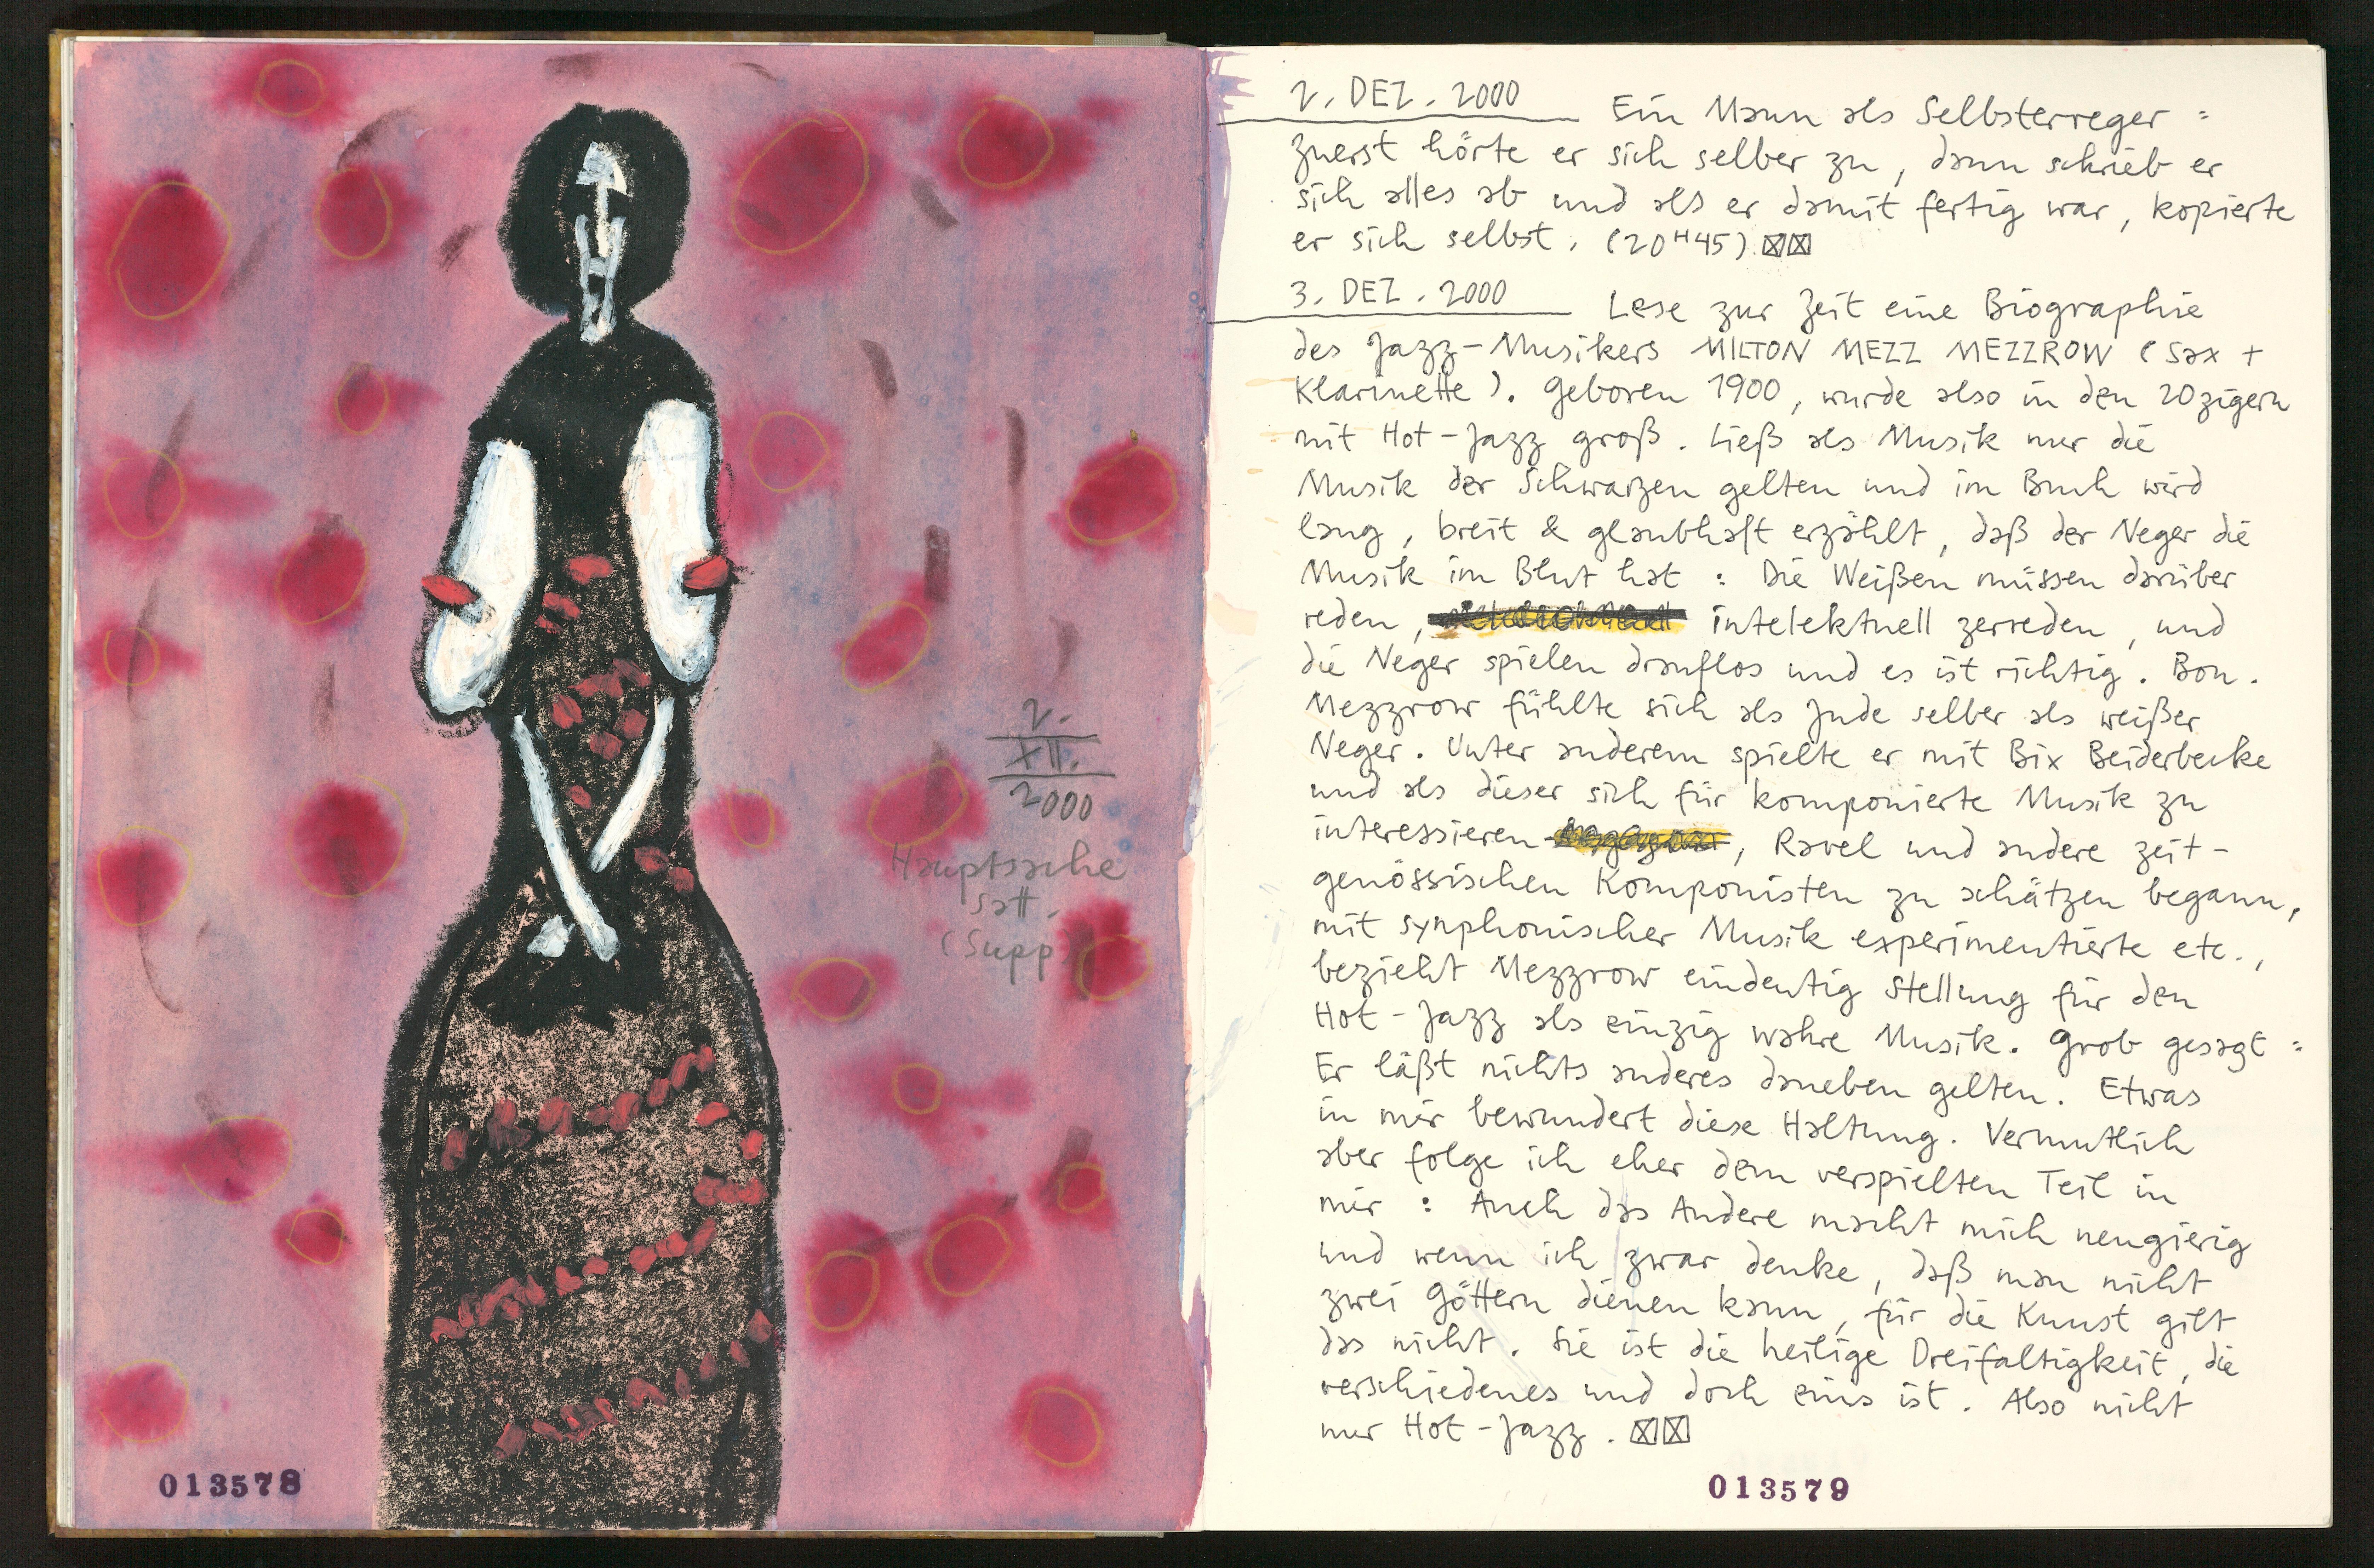 2.
XII.
2000
Hauptsache
satt.
(Supp)
013578
2. DEZ. 2000 Ein Mann als Selbsterreger :
zuerst hörte er sich selber zu, dann schrieb er
sich alles ab und als er damit fertig war, kopierte
er sich selbst. (20H45) ☒☒
3. DEZ. 2000 Lese zur Zeit eine Biographie
des Jazz-Musikers MILTON MEZZ MEZZROW (Sax +
Klarinette). Geboren 1900, wurde also in den 20zigern
mit Hot-Jazz groß. Ließ als Musik nur die
Musik der Schwarzen gelten und im Buch wird
lang, breit & glaubhaft erzählt, daß der Neger die
Musik im Blut hat : Die Weißen müssen darüber
reden, intelektuell zerreden, und
die Neger spielen drauflos und es ist richtig. Bon.
Mezzrow fühlte sich als Jude selber als weißer
Neger. Unter anderem spielte er mit Bix Beiderbecke
und als dieser sich für komponierte Musik zu
interessieren , Ravel und andere zeit-
genössischen Komponisten zu schätzen begann,
mit symphonischer Musik experimentierte etc.,
bezieht Mezzrow eindeutig Stellung für den
Hot-Jazz als einzig wahre Musik. Grob gesagt :
Er läßt nichts anderes daneben gelten. Etwas
in mir bewundert diese Haltung. Vermutlich
aber folge ich eher dem verspielten Teil in
mir : Auch das Andere macht mich neugierig
und wenn ich zwar denke, daß man nicht
zwei Göttern dienen kann, für die Kunst gilt
das nicht. Sie ist die heilige Dreifaltigkeit, die
verschiedenes und doch eins ist. Also nicht
nur Hot-Jazz. ☒☒
013579